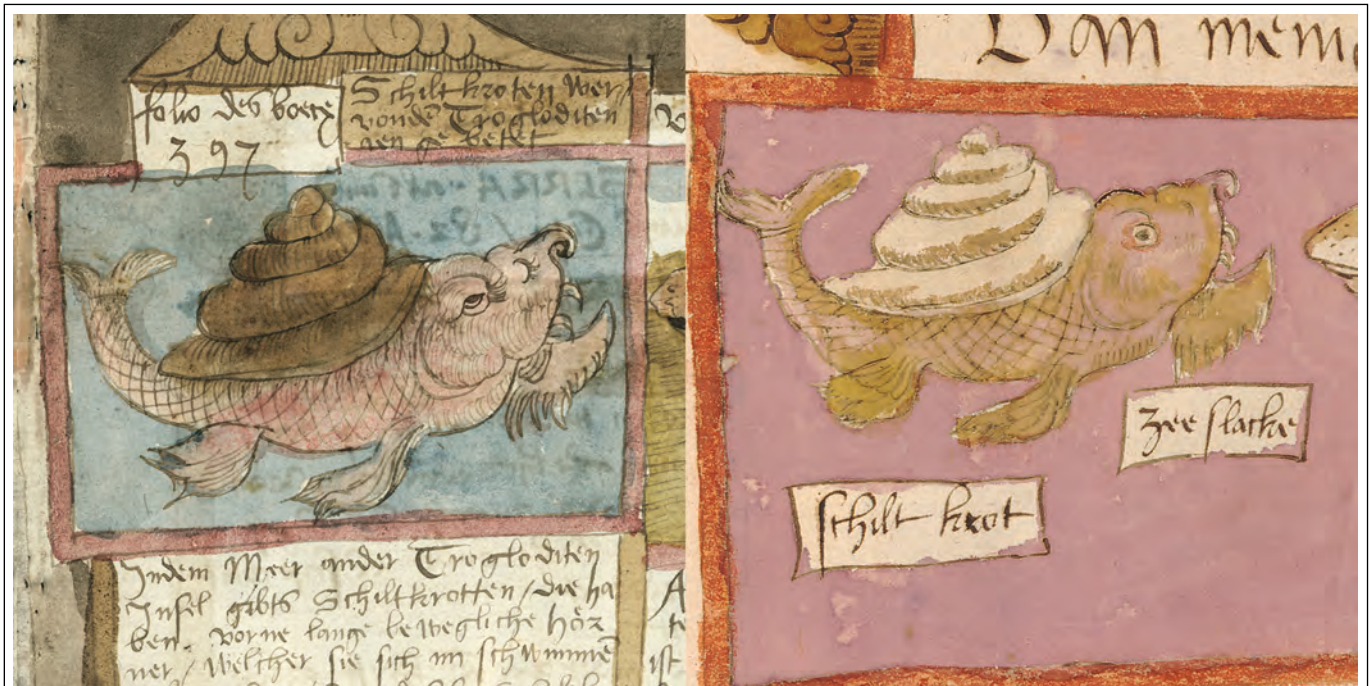 folio des boecx
397
Schiltkroten wer
vonde Trogloditen
an ge betet
Indem Meer ander Trogloditen
Insel gibts Schiltkrotten / die ha
ben. vorne lange bewegliche hör
ner / welcher sie sich im schwimme
Van
schilt krot
zee slacke